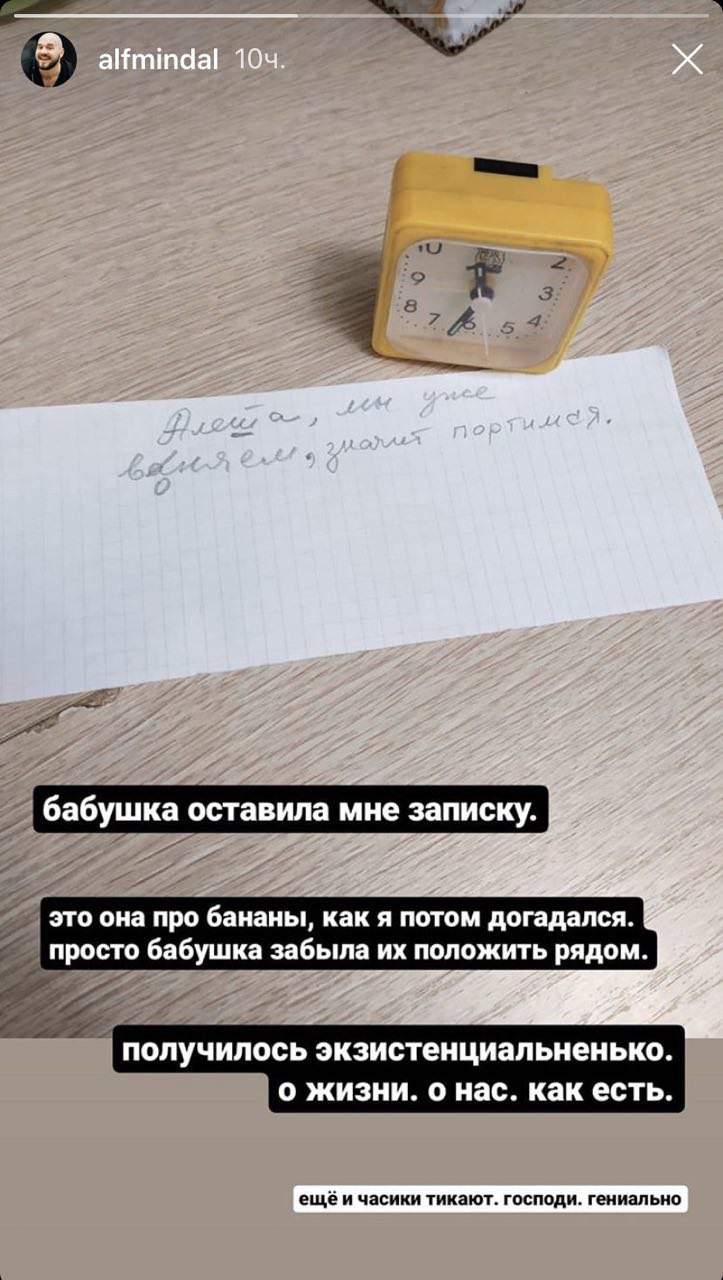 alfmindal 10ч.
10
12
2
9
3
8
4
7
6
5
Алеша, мы уже
воняем, значит портимся.
бабушка оставила мне записку.
это она про бананы, как я потом догадался.
просто бабушка забыла их положить рядом.
получилось экзистенциальненько.
о жизни. о нас. как есть.
ещё и часики тикают. господи. гениально